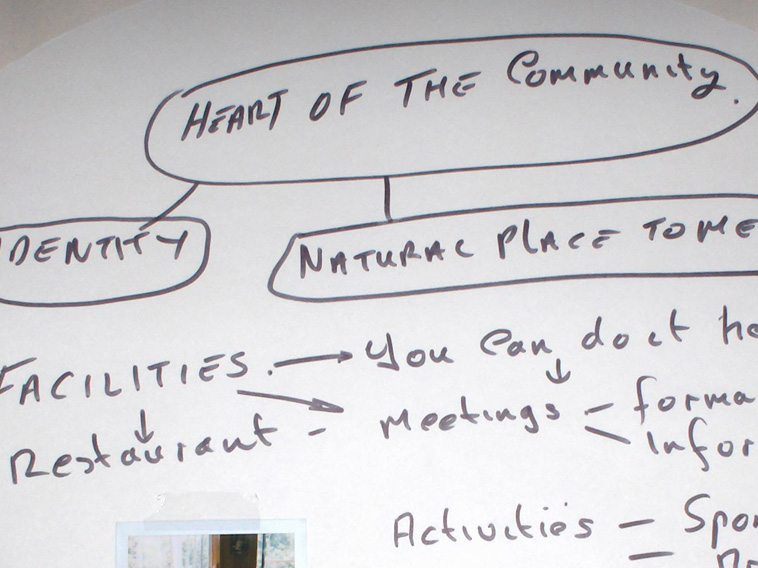 HEART OF THE Community.
IDENTITY
NATURAL PLACE TO ME
FACILITIES. → You Can do it he
Restaurant - Meetings - forma
Infor
Activities - Spor